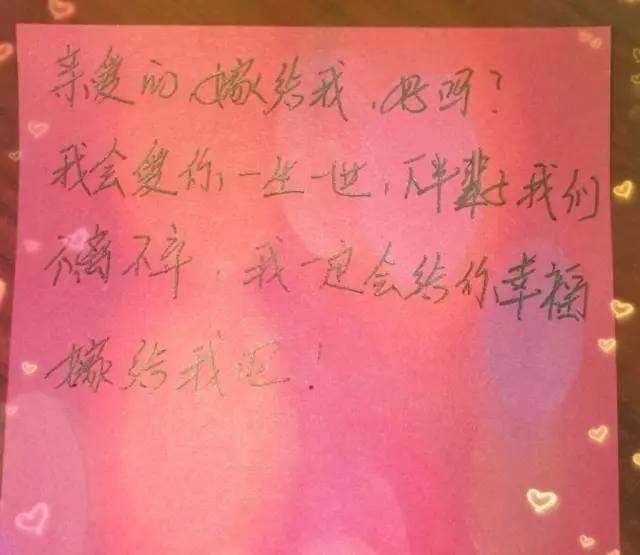 亲爱的嫁给我，好吗？
我会爱你一生一世，下半辈子我们
不离不弃，我一定会给你幸福
嫁给我吧！